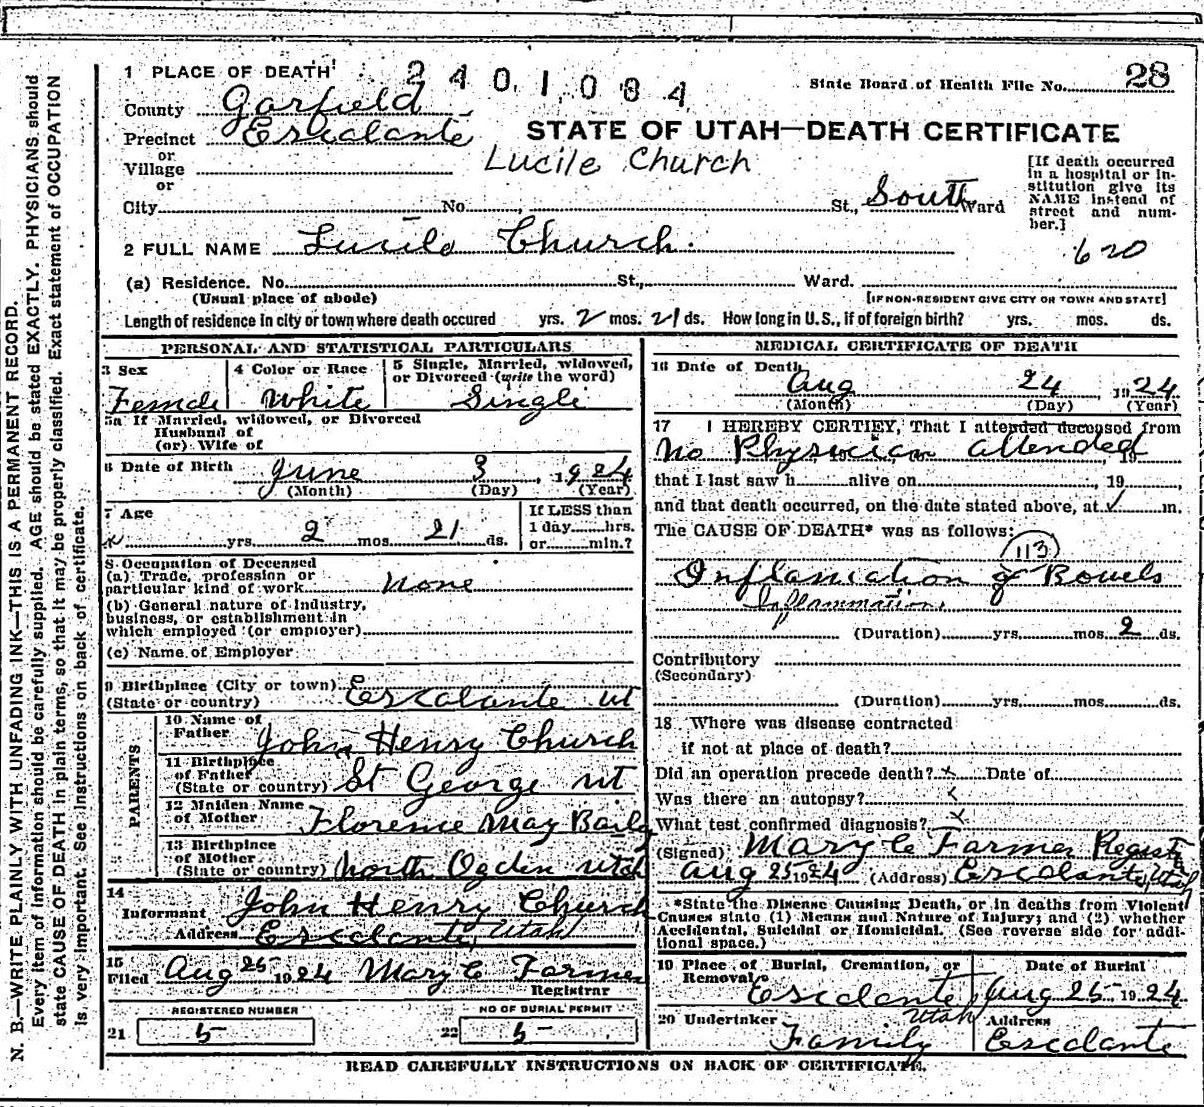 1 PLACE OF DEATH 2401084
State Board of Health File No. 28
County Garfield
Precinct Escalante
STATE OF UTAH—DEATH CERTIFICATE
or
Village
Lucile Church
or
[If death occurred in a hospital or institution give its NAME instead of street and number.]
City No. St., South Ward
2 FULL NAME Lucile Church.
620
(a) Residence. No. St., Ward.
(Usual place of abode) [IF NON-RESIDENT GIVE CITY OR TOWN AND STATE]
Length of residence in city or town where death occured yrs. 2 mos. 21 ds. How long in U.S., if of foreign birth? yrs. mos. ds.
PERSONAL AND STATISTICAL PARTICULARS
3 Sex
Female
4 Color or Race
White
5 Single, Married, widowed,
or Divorced (write the word)
Single
5a If Married, widowed, or Divorced
Husband of
(or) Wife of
6 Date of Birth June 3, 1924
(Month) (Day) (Year)
7 Age
yrs. 2 mos. 21 ds.
If LESS than
1 day hrs.
or min.?
8 Occupation of Deceased
(a) Trade, profession or
particular kind of work none
(b) General nature of Industry,
business, or establishment in
which employed (or employer)
(c) Name of Employer
9 Birthplace (City or town)
(State or country) Escalante ut
PARENTS
10 Name of
Father John Henry Church
11 Birthplace
of Father
(State or country) St George ut
12 Maiden Name
of Mother Florence May Baily
13 Birthplace
of Mother
(State or country) North Ogden utah
14
Informant John Henry Church
Address Escalante, Utah
15
Filed Aug 25 1924 Mary C Farmer
Registrar
REGISTERED NUMBER
21 5
NO OF BURIAL PERMIT
22 5-
MEDICAL CERTIFICATE OF DEATH
16 Date of Death
Aug 24 1924
(Month) (Day) (Year)
17 I HEREBY CERTIFY, That I attended deceased from
No Physician attended 19
that I last saw h alive on , 19 ,
and that death occurred, on the date stated above, at m.
The CAUSE OF DEATH* was as follows:
113
Inflamation of Bowels
Inflammation
(Duration) yrs. mos. 2 ds.
Contributory
(Secondary)
(Duration) yrs. mos. ds.
18 Where was disease contracted
if not at place of death?
Did an operation precede death? x Date of
Was there an autopsy?
What test confirmed diagnosis? x
(Signed) Mary C Farmer Regist
aug 25 1924 (Address) Escalante, Utah
*State the Disease Causing Death, or in deaths from Violent
Causes state (1) Means and Nature of Injury; and (2) whether
Accidental, Suicidal or Homicidal. (See reverse side for addi-
tional space.)
19 Place of Burial, Cremation, or
Removal Escalante Utah
Date of Burial
Aug 25 1924
20 Undertaker
Family
Address
Escalante
READ CAREFULLY INSTRUCTIONS ON BACK OF CERTIFICATE.
N. B.—WRITE PLAINLY WITH UNFADING INK—THIS IS A PERMANENT RECORD.
Every item of information should be carefully supplied. AGE should be stated EXACTLY. PHYSICIANS should
state CAUSE OF DEATH in plain terms, so that it may be properly classified. Exact statement of OCCUPATION
is very important. See instructions on back of certificate.